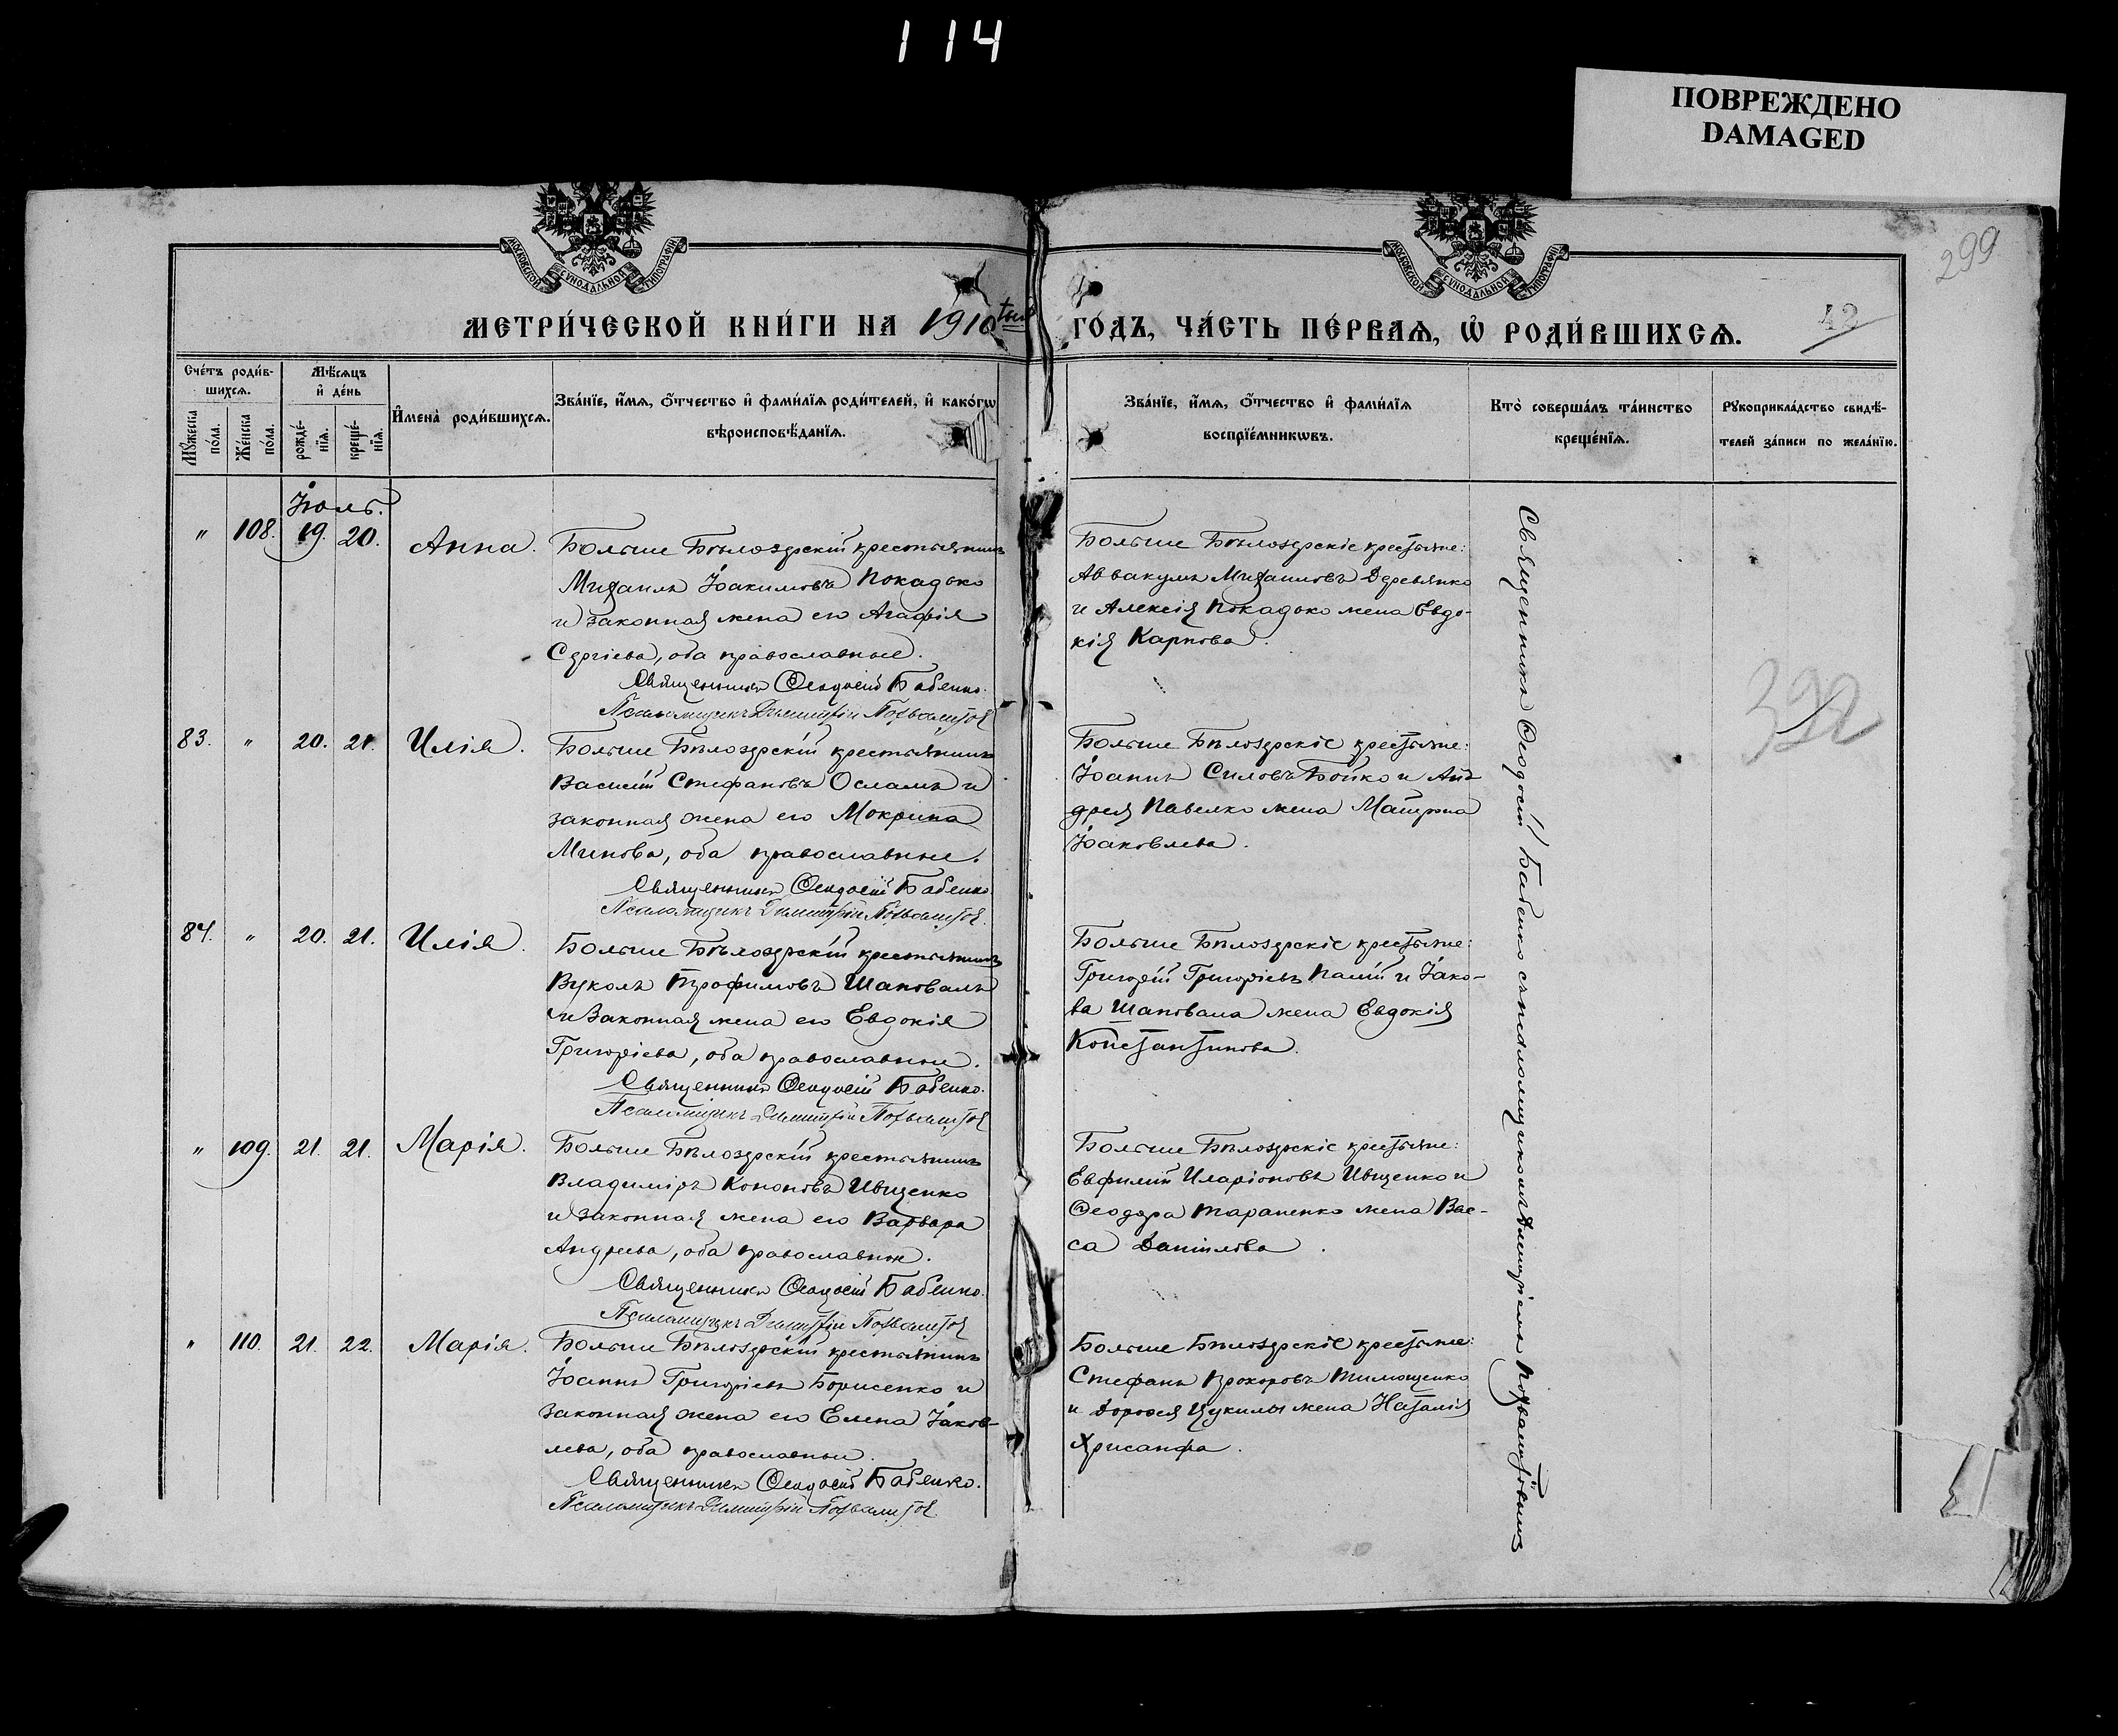 114
ПОВРЕЖДЕНО
DAMAGED
299
МОСКОВСКОЙ СѴНОДАЛЬНОЙ ТИПОГРАФІИ
МОСКОВСКОЙ СѴНОДАЛЬНОЙ ТИПОГРАФІИ
МЕТРИ́ЧЕСКОЙ КНИ́ГИ НА 1910тый ГО́ДЪ, ЧА́СТЬ ПЕ́РВАЯ, Ѡ РОДИ́ВШИХСЯ.
42
Сче́тъ роди́в-
шихся.
Мѣ́сяцъ
и҆ де́нь
Мꙋ́жеска по́ла.
Же́нска по́ла.
рожде́-
нїя.
креще́-
нїя.
И҆мена̀ роди́вшихся.
Зва́нїе, и҆́мя, ѻ҆́тчество и҆ фами́лїя роди́телей, и҆ како́гѡ
вѣроисповѣ́данїя.
Зва́нїе, и҆́мя, ѻ҆́тчество и҆ фами́лїя
воспрїе́мникѡвъ.
Кто̀ соверша́лъ та́инство
креще́нїя.
Рꙋкоприкла́дство свидѣ́-
телей за́писи по жела́нїю.
Іюль.
" 108. 19. 20. Анна.
Больше Бѣлозерскій крестьянинъ
Михаилъ Іоакимовъ Покадько
и законная жена его Агафія
Сергіева, оба православные.
Священникъ Ѳеодосій Бабенко.
Псаломщикъ Димитрій Похвалитов
Больше Бѣлозерскіе крестьяне:
Аввакумъ Михаиловъ Деревянко
и Алексія Покадько жена Евдо-
кія Карпова.
83. " 20. 21. Илія.
Больше Бѣлозерскій крестьянинъ
Василій Стефановъ Осламъ и
законная жена его Мокрина
Минова, оба православные.
Священникъ Ѳеодосій Бабенко.
Псаломщикъ Димитрій Похвалитов
Больше Бѣлозерскіе крестьяне:
Іоаннъ Силовъ Бойко и Ан-
дрея Павелко жена Матрона
Іаковлева.
84. " 20. 21. Илія.
Больше Бѣлозерскій крестьянинъ
Вуколъ Трофимовъ Шаповалъ
и законная жена его Евдокія
Григоріева, оба православные.
Священникъ Ѳеодосій Бабенко.
Псаломщикъ Димитрій Похвалитов
Больше Бѣлозерскіе крестьяне:
Григорій Григоріевъ Палій и Іако-
ва Шаповала жена Евдокія
Константинова.
" 109. 21. 21. Марія.
Больше Бѣлозерскій крестьянинъ
Владиміръ Кононовъ Ивщенко
и законная жена его Варвара
Андреева, оба православные.
Священникъ Ѳеодосій Бабенко.
Псаломщикъ Димитрій Похвалитов
Больше Бѣлозерскіе крестьяне:
Евфимій Иларіоновъ Ивщенко и
Ѳеодора Тараненко жена Вас-
са Даніилова.
" 110. 21. 22. Марія.
Больше Бѣлозерскій крестьянинъ
Іоаннъ Григоріевъ Борисенко и
законная жена его Елена Іаков-
лева, оба православные.
Священникъ Ѳеодосій Бабенко.
Псаломщикъ Димитрій Похвалитов
Больше Бѣлозерскіе крестьяне:
Стефанъ Прокоровъ Тимощенко
и Дороѳея Цукилы жена Наталія
Хрисанфа.
Священникъ Ѳеодосій Бабенко съ псаломщикомъ Димитріемъ Похвалитовымъ
392